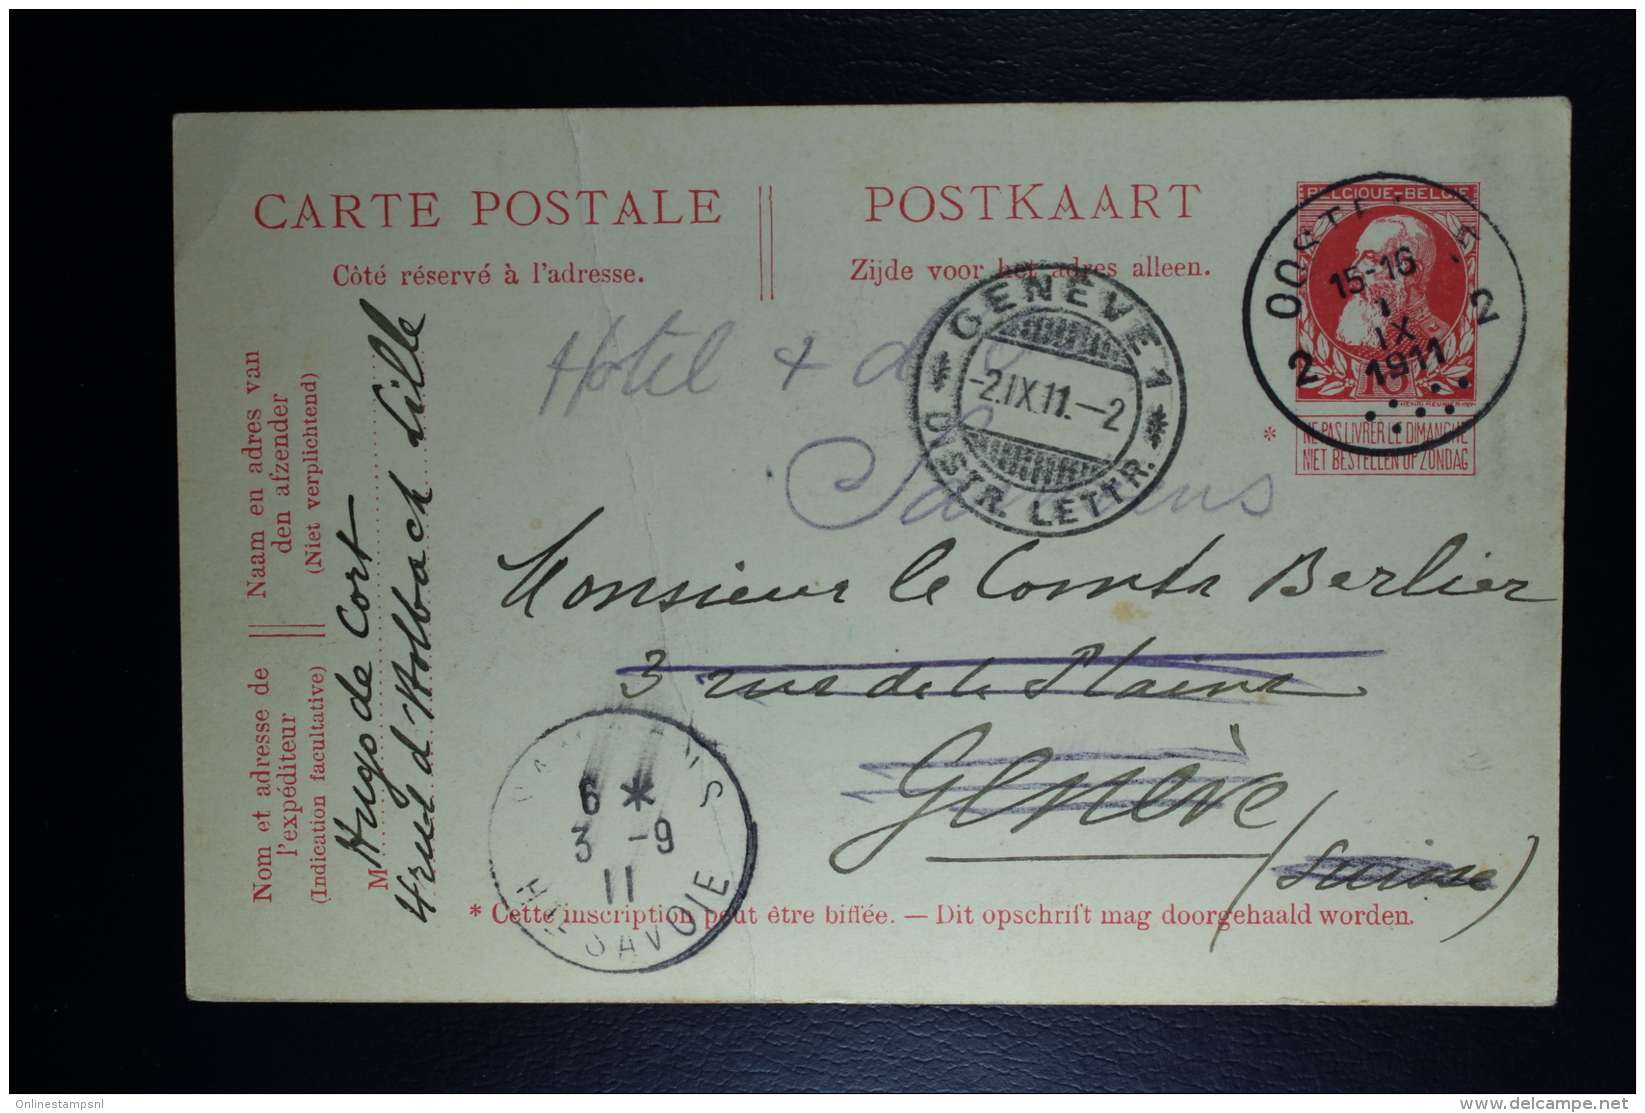 CARTE POSTALE
Côté réservé à l'adresse.
POSTKAART
Zijde voor het adres alleen.
BELGIQUE-BELGIE
2 15-16 2
1
IX
1911
10
HENRI MEUNIER INV.
* NE PAS LIVRER LE DIMANCHE
NIET BESTELLEN OP ZONDAG
GENÈVE 1
-2.IX.11.-2
DISTR. LETTR.
Hotel +
Monsieur le Comte Berlier
3 rue de la Plaine
Genève
(Suisse)
Naam en adres van
den afzender
(Niet verplichtend)
Nom et adresse de
l'expéditeur
(Indication facultative)
M Hugo de Cort
4 rue d'Holbach Lille
6 *
3 -9
11
HTE SAVOIE
* Cette inscription peut être biffée. — Dit opschrift mag doorgehaald worden.
Onlinestampsnl
delcampe.net